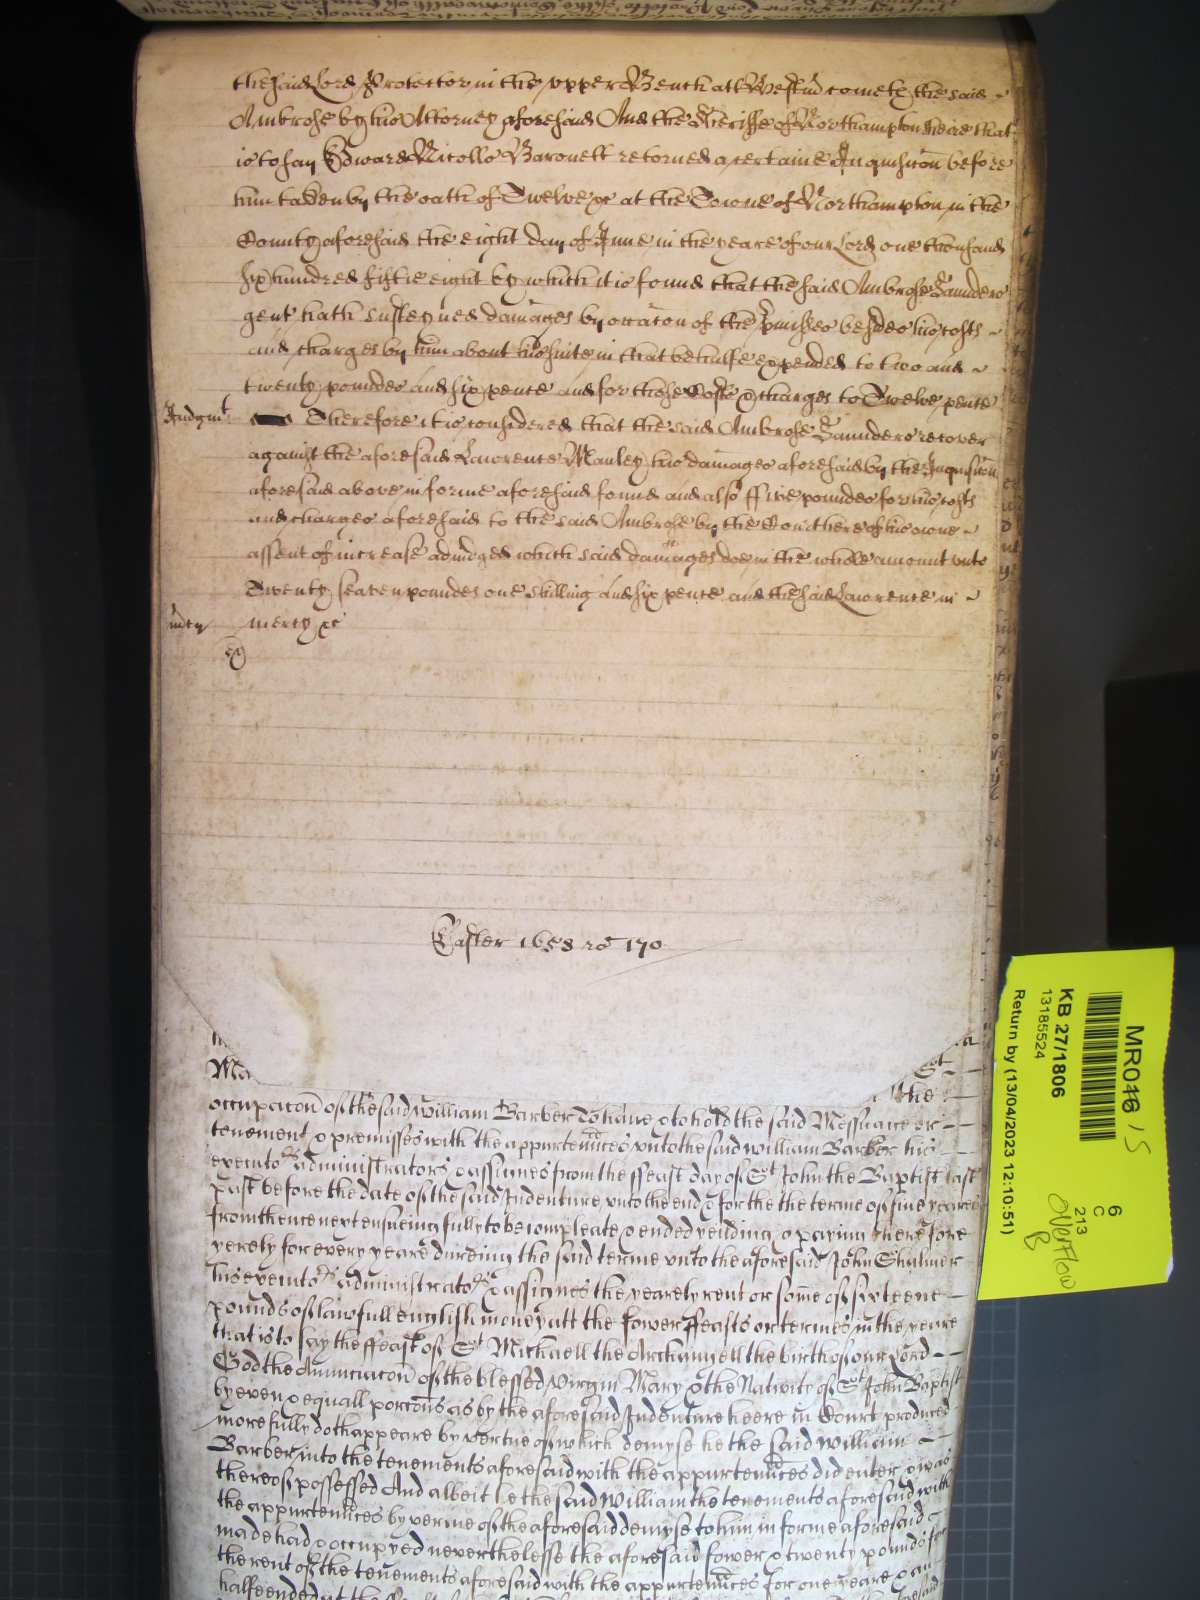 the said Lord Protector in the upper Bench att Westm̄ cometh the said
Ambrose by his Attorney aforesaid And the Sheriffe of Northampton that
is to say Edward Nicolls Baronett returned a certaine Inquisicōn before
him taken by the oath of Twelve &c at the Towne of Northampton in the
County aforesaid the eight day of June in the yeare of our Lord one thousand
six hundred fiftie eight by which it is found that the said Ambrose Saunders
gent hath susteyned damages by occacōn of the p̄misses besides his costs
and charges by him about his suite in that behalfe expended to two and
twenty poundes and six pence and for those Costs & charges to Twelve pence
Judgmt Therefore it is considered that the said Ambrose Saunders recover
against the aforesaid Lawrence Manley his damages aforesaid by the Inquisicōn
aforesaid above in forme aforesaid found and also ffive poundes for his costs
and charges aforesaid to the said Ambrose by the Court here of his owne
assent of increase adiudged which said damages doe in the whole amount unto
Twenty seaven poundes one shilling and six pence and the said Lawrence in
mercy &c
Easter 1658 ro 170
Ma
the
occupacōn of the said William Barber To have & to hold the said Messuage or
tenement & premisses with the appurtennces unto the said William Barber his
executors administrators & assignes from the ffeast day of St John the Baptist last
past before the date of the said Indenture unto the end & for the the terme of five yeares
from thence next ensueing fully to be compleate & ended yeilding & paying therefore
yerely for every yeare dureing the said terme unto the aforesaid John
his executors administrators & assignes the yearely rent or some of sixteene
pounds of lawfull english money att the fower ffeasts or termes in the yeare
that is to say the ffeast of St Michaell the Archangell the birth of our Lord
God the Anunciacōn of the blessed Virgin Mary & the Nativity of St John Baptist
by even & equall porcōns as by the aforesaid Indenture heere in Court produced
more fully doth appeare by vertue of which demyse he the said William
Barber into the tenements aforesaid with the appurtennces did enter & was
thereof possessed And albeit he the said William the tenements aforesaid with
the appurtennces by vertue of the aforesaid demyse to him in forme aforesaid
made had & occupyed neverthelesse the aforesaid fower & twenty pounds for
the rent of the tenements aforesaid with the appurtennces for one yeare & an
halfe ended att the
MR046 15
KB 27/1806
13185524
Return by (13/04/2023 12:10:51)
6
C
213
overflow
B